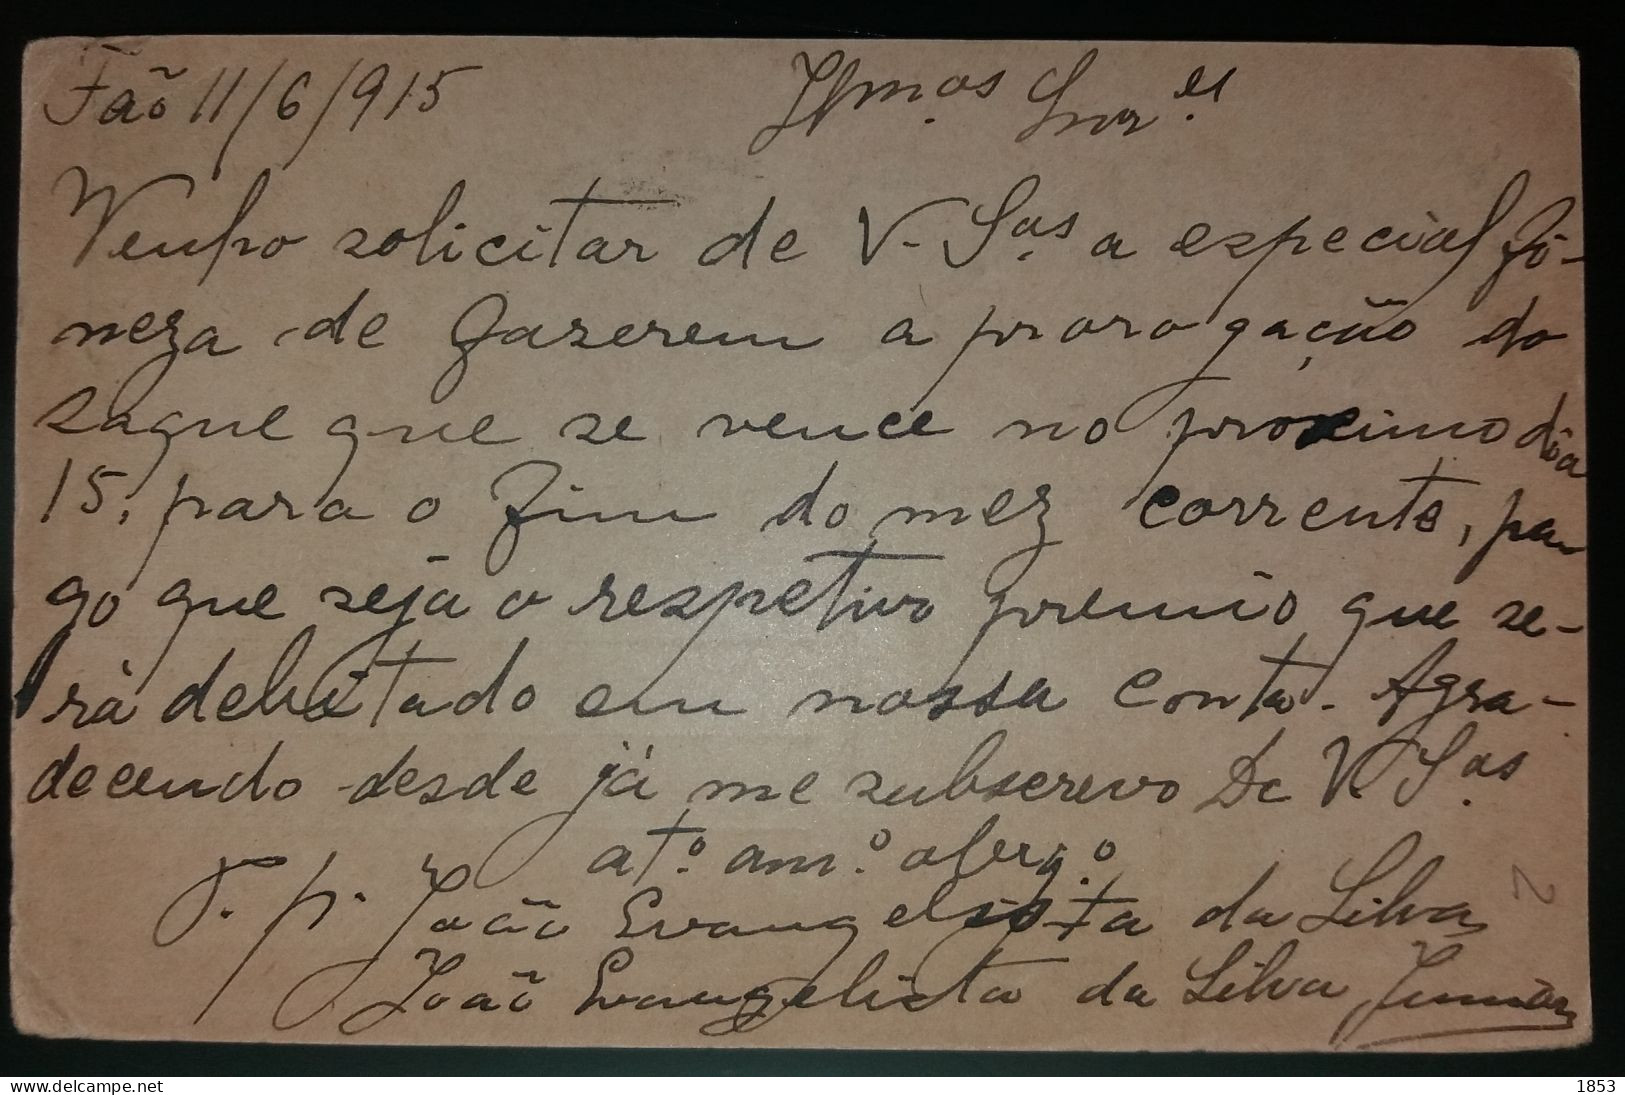 Fão 11/6/915
Illm.os Snr.es
Venho solicitar de V. S.as a especial fi-
neza de fazerem a prorogação do
saque que se vence no proximo dia
15, para o fim do mez corrente, pa-
go que seja o respetivo premio que se-
rá debitado em nossa conta. Agra-
decendo desde já me subscrevo De V. S.as
at.o am.o obrg.o
P. p. João Evangelista da Silva
João Evangelista da Silva Junior
2
www.delcampe.net
1853